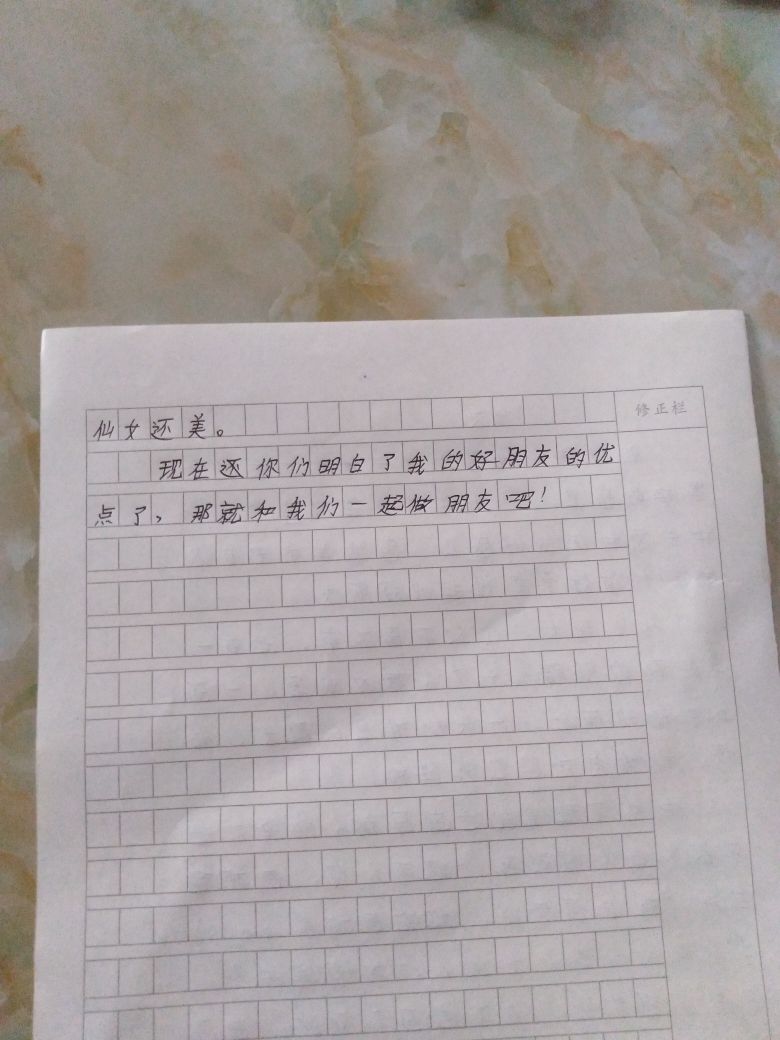 仙女还美。
修正栏
现在还你们明白了我的好朋友的优
点了，那就和我们一起做朋友吧！